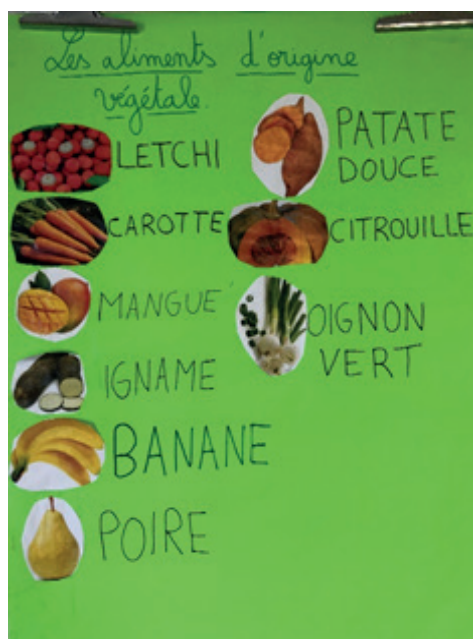 Les aliments d'origine
végétale.
LETCHI
CAROTTE
MANGUE
IGNAME
BANANE
POIRE
PATATE
DOUCE
CITROUILLE
OIGNON
VERT